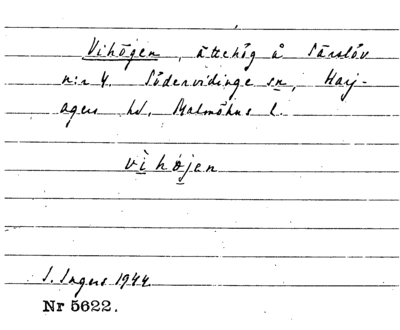 Vihögen, ättehög å Särslöv
n:r 4. Södervidinge sn, Harj-
agers hd. Malmöhus l.
vìhøjen
S. Ingers 1944
Nr 5622.